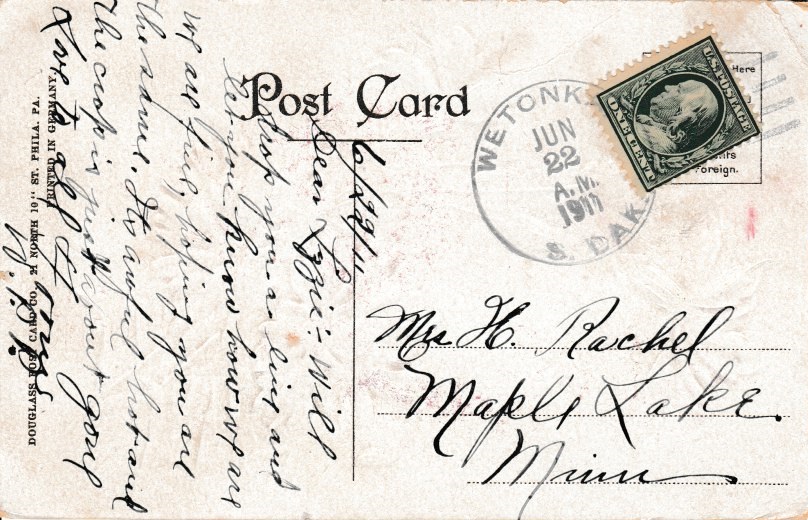 Post Card
WETONK
JUN
22
A.M.
1911
S. DAK
U.S. POSTAGE
ONE CENT
Here
Foreign.
6/22/11
Dear Lizzie:- Will
drop you a line and
let you know how we are
we are fine, hoping you are
the same. It's awful hot and
the crop is just about gone
Love to all
Mrs H. Rachel
Maple Lake.
Minn
DOUGLASS POST CARD CO. 21 NORTH 10TH ST. PHILA. PA.
PRINTED IN GERMANY